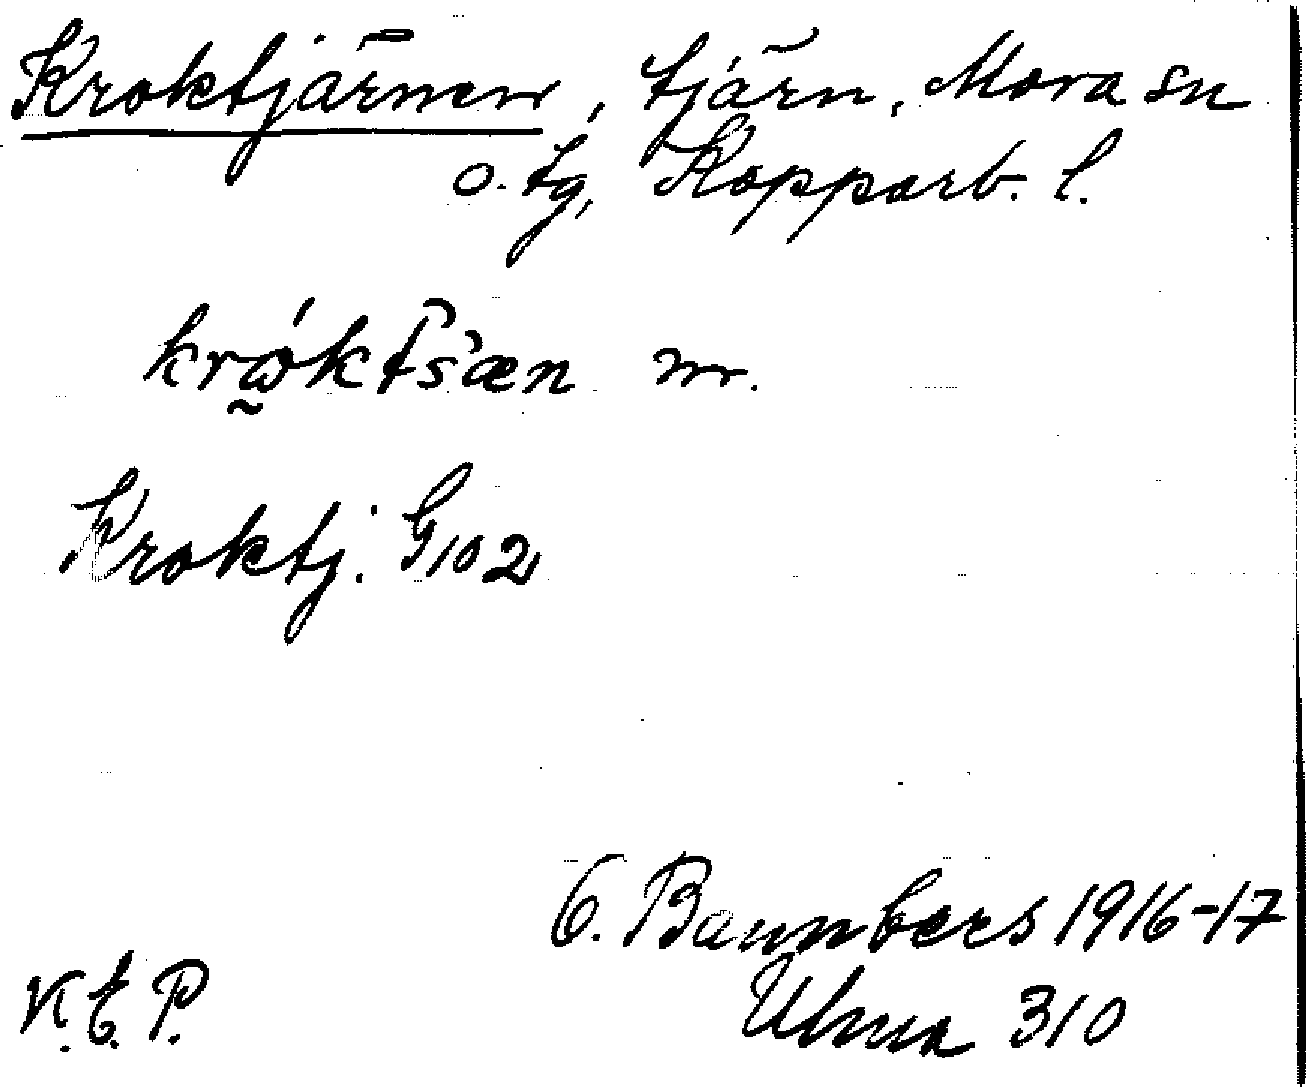 Kroktjärnen, tjärn, Mora sn
o. tg, Kopparb. l.
m.
Kroktj. G 102
O. Bannbers 1916-17
Ulma 310
K.t P.